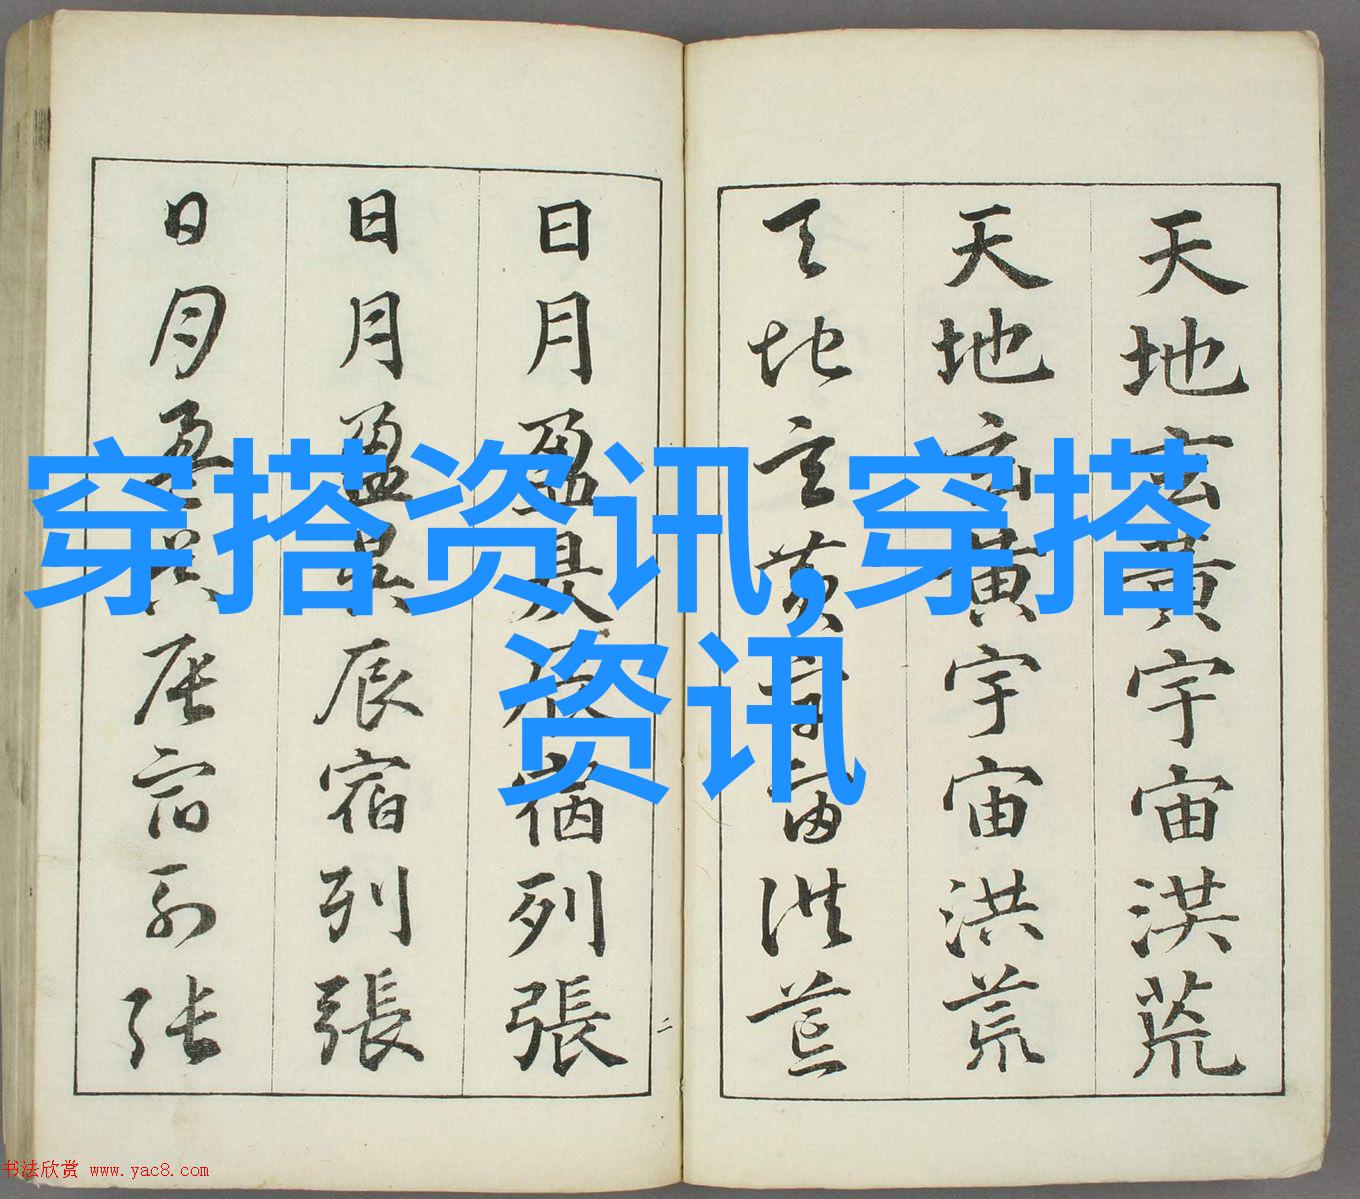 天地玄黄宇宙洪荒
天地玄黄宇宙洪荒
天地玄黄宇宙洪荒
日月盈昃辰宿列張
日月盈昃辰宿列張
日月盈昃辰宿列張
二
穿搭资讯,穿搭
资讯
书法欣赏 www.yac8.com